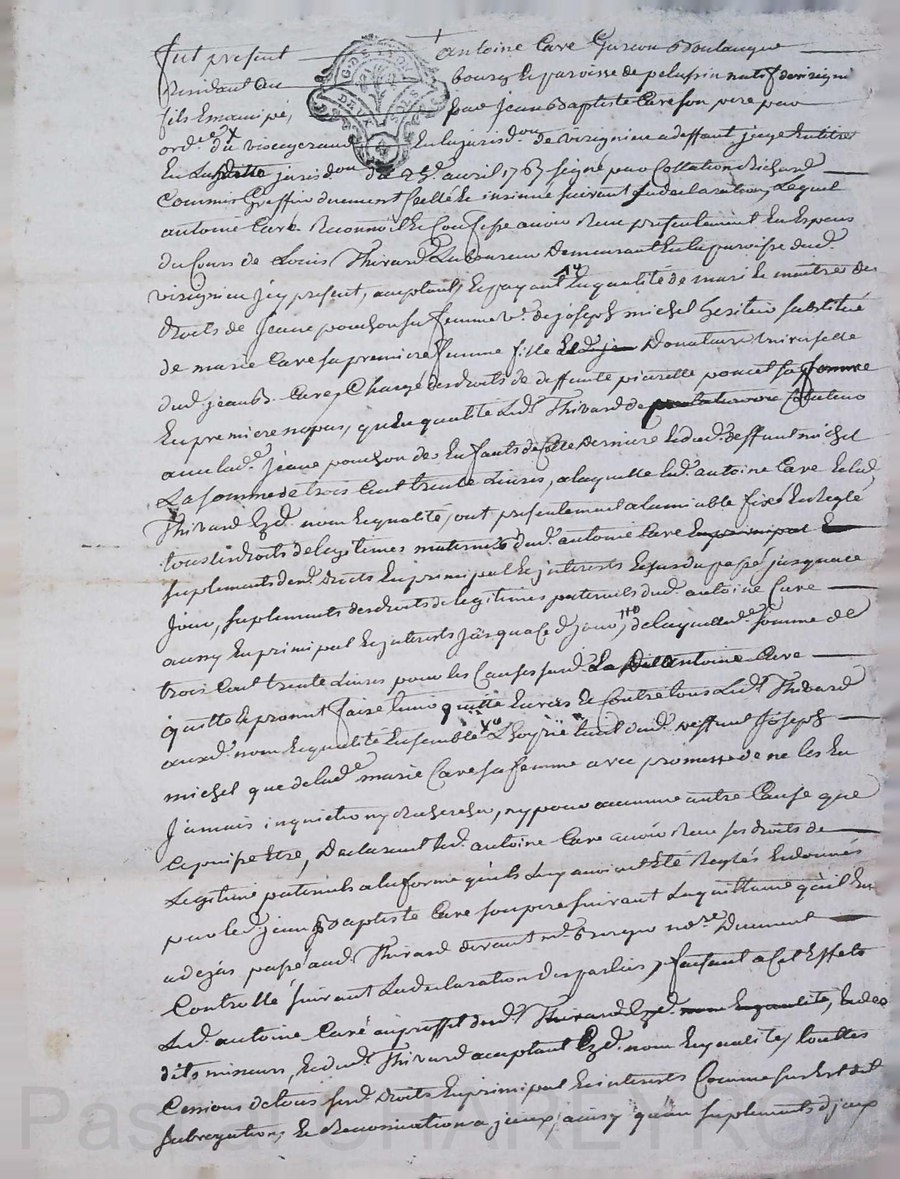 fut present antoine Caré Garcon Boulangué
Residant du bourg et paroisse de pelussin natif de virignin
fils Emancipé, par jean Baptiste Caré son pere par
ord.ce du en la jurisd.on de virignin a deffaut juge
En Laditte jurisd.on du 25.e avril 1767 signé par Collation Richard
Commis Greffier duement scellé et insinué suivant sa declaration, Lequel
antoine Caré Reconnoit et Confesse avoir Receu presentement en Especes
du Cours de Louis Thivard Laboureur Demeurant En la paroisse dud.
virignin icy present, acceptant, et payant En qualité de mari et maitre des
droits de jeane pouchon sa femme v.e de joseph michel heritier substitué
de marie Caré sa premiere femme fille Donataire universelle
dud. jean B. Caré, Chargé des droits de deffunte poncet sa femme
En premieres nopces, que En qualité Led. Thivard de
avec lad.e jeane pouchon des Enfants de Celle derniere et dud. deffunt michel
La somme de trois Cent trente Livres, a laquelle Led. antoine Caré et led.
Thivard Ezd. nom et qualité, ont presentement a lamiable fixé et Reglé
tous les droits de legitimes maternels dud. antoine Caré En principal
suplements desd. droits En principal et interests jusqu'a ce
jour, suplements des droits de legitimes paternels dud. antoine Caré
aussy En principal et interests jusqu'a ce d. jour, de laquelle d.e somme de
trois Cent trente Livres pour les Causes susd. Led. antoine Caré
quitte et promet faire tenir quitte Envers et Contre tous Led. Thivard
auxd. nom et qualité Ensemble L'hoyrie tant dud. deffunt joseph
michel que de lad.e marie Caré sa femme avec promesse de ne les En
jamais inquieter ny Rechercher, ny pour aucune autre Cause que
Ce puisse Etre, Declarant Led. antoine Caré avoir Receu ses droits de
Legitime paternels a la forme qu'ils Luy avoient Eté Reglés Et donnés
par led. jean Baptiste Caré son pere suivant La quittance qu'il En
a deja passé aud. Thivard devant m.e no.re Duement
Controllé suivant La declaration des parties, faisant a Cet Effets
Led. antoine Caré au proffit dud. Thivard Ezd. nom et qualité, et desd.
dits mineurs, et dud. Thivard acceptant Ezd. nom et qualité, touttes
Cessions de tous susd. droits En principal et interests Comme sus Est dit
subrogation, et Renonciation a jceux, ainsy qu'au suplements d'jceux